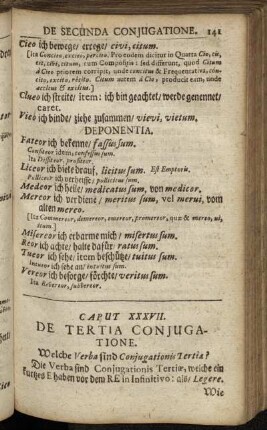 DE SECUNDA CONJUGATIONE. 141
Cieo ich bewege/ errege/ civi, citum.
[Ita Concieo, excieo, percieo. Pro eodem dicitur in Quarta Cio, cis,
civi, citum, cum Compositis: sed differunt, quod Citum
à Cieo priorem corripit, unde concitus & Frequentativa, concito,
excito, recito. Citum autem à Cio, producit eam, unde
accitus & excitus.]
Clueo ich streite/ item: ich bin geachtet/ werde genennet/
caret.
Vieo ich binde/ ziehe zusammen/ vievi, vietum.
DEPONENTIA.
Fateor ich bekenne/ fassus sum.
Confiteor idem, confessus sum.
Ita Diffiteor, profiteor.
Liceor ich biete drauf, licitus sum. Est Emptoris.
Polliceor ich verheisse/ pollicitus sum.
Medeor ich heile/ medicatus sum, von medicor.
Mereor ich verdiene/ meritus sum, vel merui, vom
alten mereo.
[Ita Commereor, demereor, emereor, promereor, quæ & mereo, ui,
itum.]
Misereor ich erbarme mich/ misertus sum.
Reor ich achte/ halte dafür/ ratus sum.
Tueor ich sehe/ item beschütze/ tuitus sum.
Intueor ich sehe an/ intuitus sum.
Vereor ich besorge/ förchte/ veritus sum.
Ita Revereor, subvereor.
CAPUT XXXVII.
DE TERTIA CONJUGA-
TIONE.
Welche Verba sind Conjugationis Tertiæ?
Die Verba sind Conjugationis Tertiæ, welche ein
kurtzes E haben vor dem RE in Infinitivo: als/ Legere.
Wie